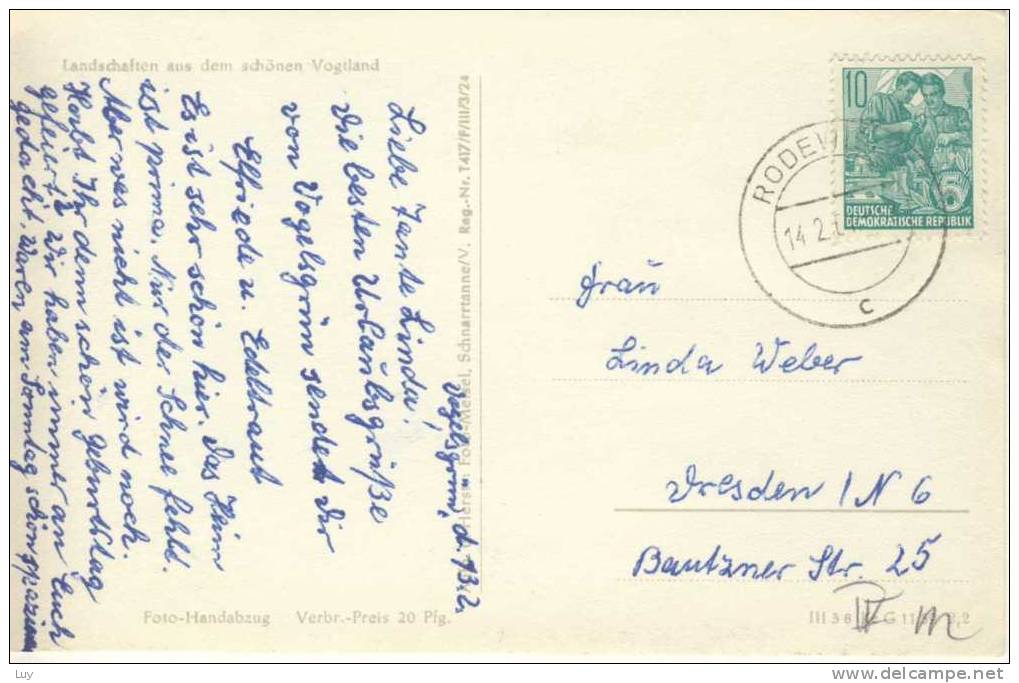 Landschaften aus dem schönen Vogtland
Vogelsgrün, d. 13.2.
Liebe Tante Linda!
Die besten Urlaubsgrüße
von Vogelsgrün sendet Dir
Elfriede u. Edeltraut
Es ist sehr schön hier. Das Heim
ist prima. Nur der Schnee fehlt.
Aber was nicht ist wird noch.
Habt Ihr denn schön Geburtstag
gefeiert? Wir haben immer an Euch
gedacht, waren am Sonntag schön spazieren
Herst.: Foto-Meisel, Schnarrtanne/V. Reg.-Nr. T 417/F/III/3/24
Foto-Handabzug Verbr.-Preis 20 Pfg.
10
DEUTSCHE
DEMOKRATISCHE REPUBLIK
14.2.
c
Frau
Linda Weber
Dresden / N 6
Bautzner Str. 25
IV m
Luy
www.delcampe.net